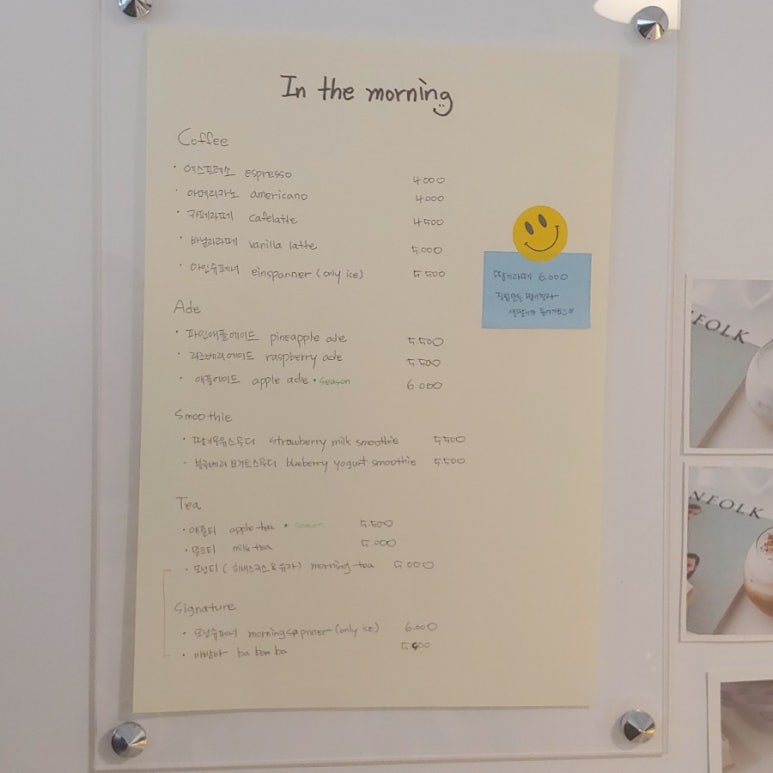 In the morning
Coffee
· 에스프레소 espresso 4000
· 아메리카노 americano 4000
· 카페라떼 cafelatte 4500
· 바닐라라떼 vanilla latte 5,000
· 아인슈페너 einspanner (only ice) 5,500
Ade
· 파인애플에이드 pineapple ade 5,500
· 라즈베리에이드 raspberry ade 5,500
· 애플에이드 apple ade · season 6.000
Smoothie
· 딸기우유스무디 strawberry milk smoothie 5,500
· 블루베리 요거트스무디 blueberry yogurt smoothie 5,500
Tea
· 애플티 apple tea · season 5,500
· 밀크티 milk tea 5,000
· 모닝티 (히비스커스&유자) morning tea 5,000
Signature
· 모닝슈페너 morningspanner (only ice) 6.000
· ba bam ba
딸기라떼 6.000
NFOLK
NFOLK